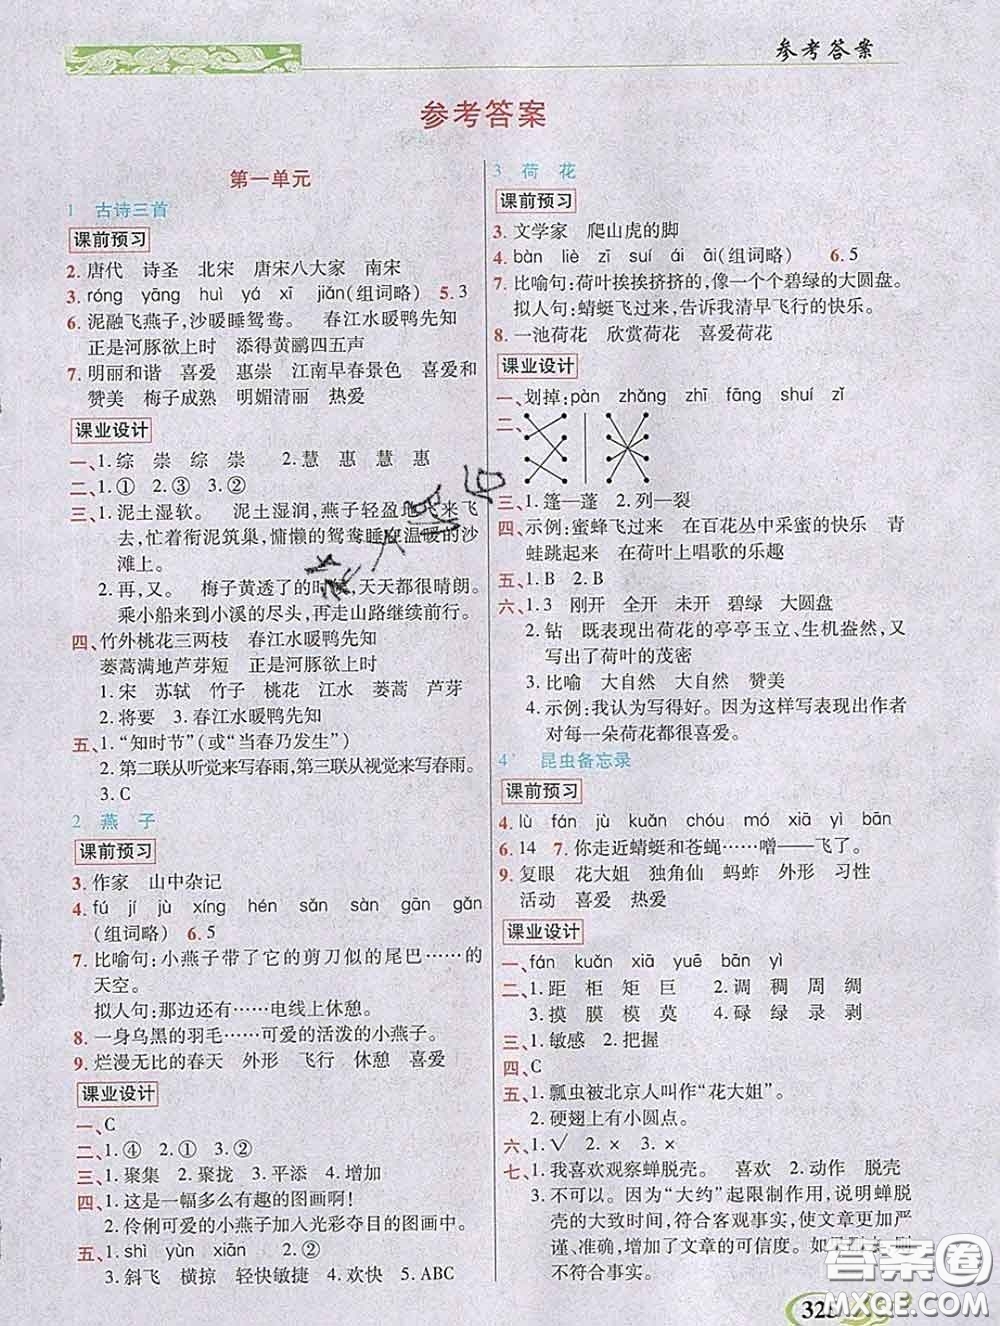 参考答案
参考答案
第一单元
1 古诗三首
课前预习
2. 唐代 诗圣 北宋 唐宋八大家 南宋
3. róng yāng huì yá xī jiǎn(组词略) 5. 3
6. 泥融飞燕子,沙暖睡鸳鸯。 春江水暖鸭先知
正是河豚欲上时 添得黄鹂四五声
7. 明丽和谐 喜爱 惠崇 江南早春景色 喜爱和
赞美 梅子成熟 明媚清丽 热爱
课业设计
一、1. 综 崇 综 崇 2. 慧 惠 慧 惠
二、1. ① 2. ② 3. ②
三、1. 泥土湿软。 泥土湿润,燕子轻盈地飞来飞
去,忙着衔泥筑巢,慵懒的鸳鸯睡在温暖的沙
滩上。
2. 再,又。 梅子黄透了的时候,天天都很晴朗。
乘小船来到小溪的尽头,再走山路继续前行。
四、竹外桃花三两枝 春江水暖鸭先知
蒌蒿满地芦芽短 正是河豚欲上时
1. 宋 苏轼 竹子 桃花 江水 蒌蒿 芦芽
2. 将要 3. 春江水暖鸭先知
五、1. “知时节”(或“当春乃发生”)
2. 第二联从听觉来写春雨,第三联从视觉来写春雨。
3. C
2 燕子
课前预习
3. 作家 山中杂记
4. fú jí jù xíng hén sǎn sàn gān gǎn
(组词略) 6. 5
7. 比喻句:小燕子带了它的剪刀似的尾巴……的
天空。
拟人句:那边还有……电线上休憩。
8. 一身乌黑的羽毛……可爱的活泼的小燕子。
9. 烂漫无比的春天 外形 飞行 休憩 喜爱
课业设计
一、C
二、1. ④ 2. ① 3. ②
三、1. 聚集 2. 聚拢 3. 平添 4. 增加
四、1. 这是一幅多么有趣的图画啊!
2. 伶俐可爱的小燕子加入光彩夺目的图画中。
五、1. shì yùn xiān 2. ①
3. 斜飞 横掠 轻快敏捷 4. 欢快 5. ABC
3 荷花
课前预习
3. 文学家 爬山虎的脚
4. bàn liè zī suí ái āi(组词略) 6. 5
7. 比喻句:荷叶挨挨挤挤的,像一个个碧绿的大圆盘。
拟人句:蜻蜓飞过来,告诉我清早飞行的快乐。
8. 一池荷花 欣赏荷花 喜爱荷花
课业设计
一、划掉:pàn zhǎng zhī fāng shuí zǐ
二、
三、1. 篷—蓬 2. 列—裂
四、示例:蜜蜂飞过来 在百花丛中采蜜的快乐 青
蛙跳起来 在荷叶上唱歌的乐趣
五、1. B 2. B
六、1. 3 刚开 全开 未开 碧绿 大圆盘
2. 钻 既表现出荷花的亭亭玉立、生机盎然,又
写出了荷叶的茂密
3. 比喻 大自然 大自然 赞美
4. 示例:我认为写得好。因为这样写表现出作者
对每一朵荷花都很喜爱。
4* 昆虫备忘录
课前预习
4. lù fán jù kuān chóu mó xiā yīng bān
6. 14 7. 你走近蜻蜓和苍蝇……噌——飞了。
9. 复眼 花大姐 独角仙 蚂蚱 外形 习性
活动 喜爱 热爱
课业设计
一、fán kuān xiā yuē bān yì
二、1. 距 柜 矩 巨 2. 调 稠 周 绸
3. 摸 膜 模 莫 4. 碌 绿 录 剥
三、1. 敏感 2. 把握
四、C
五、1. 瓢虫被北京人叫作“花大姐”。
2. 硬翅上有小圆点。
六、1. √ 2. × 3. × 4. √
七、1. 我喜欢观察蝉脱壳。 喜欢 2. 动作 脱壳
3. 不可以。因为“大约”起限制作用,说明蝉脱
壳的大致时间,符合客观事实,使文章更严
谨、准确,增加了文章的可信度。如
不符合事实。
答案圈
MXQE.COM
325